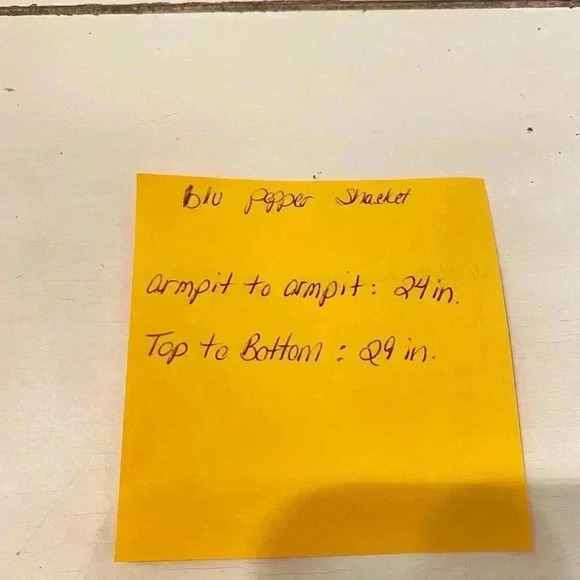 blu pepper Shacket
armpit to armpit: 24 in.
Top to Bottom: 29 in.